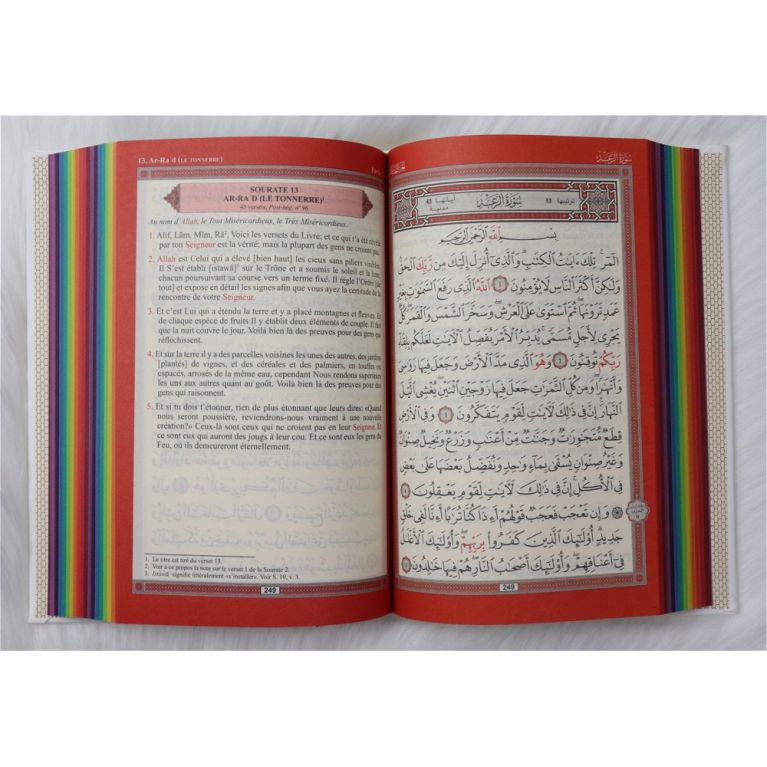 13. Ar-Ra'd (LE TONNERRE)
SOURATE 13
AR-RA'D (LE TONNERRE)¹
43 versets, Post-hég. n° 96
Au nom d'Allah, le Tout Miséricordieux, le Très Miséricordieux.
1. Alif, Lâm, Mîm, Râ², Voici les versets du Livre; et ce qui t'a été révélé
par ton Seigneur est la vérité; mais la plupart des gens ne croient pas.
2. Allah est Celui qui a élevé [bien haut] les cieux sans piliers visibles.
Il S'est établi [istawâ]³ sur le Trône et a soumis le soleil et la lune,
chacun poursuivant sa course vers un terme fixé. Il règle l'Ordre [de
tout] et expose en détail les signes afin que vous ayez la certitude de la
rencontre de votre Seigneur.
3. Et c'est Lui qui a étendu la terre et y a placé montagnes et fleuves. Et
de chaque espèce de fruits Il y établit deux éléments de couple. Il fait
que la nuit couvre le jour. Voilà bien là des preuves pour des gens qui
réfléchissent.
4. Et sur la terre il y a des parcelles voisines les unes des autres, des jardins
[plantés] de vignes, et des céréales et des palmiers, en touffes ou
espacés, arrosés de la même eau, cependant Nous rendons supérieurs
les uns aux autres quant au goût. Voilà bien là des preuves pour des
gens qui raisonnent.
5. Et si tu dois t'étonner, rien de plus étonnant que leurs dires: «Quand
nous seront poussière, reviendrons-nous vraiment à une nouvelle
création?» Ceux-là sont ceux qui ne croient pas en leur Seigneur. Et
ce sont eux qui auront des jougs à leur cou. Et ce sont eux les gens du
Feu, où ils demeureront éternellement.
1. Le titre est tiré du verset 13.
2. Voir à ce propos la note sur le verset 1 de la Sourate 2.
3. Istawâ signifie littéralement «s'installer». Voir S. 10, v. 3.
249
سورة الرعد
ترتيبها 13 سُورَةُ الرَّعْدِ آياتها 43
مدنية
بِسْمِ اللَّهِ الرَّحْمَٰنِ الرَّحِيمِ
الٓمٓر ۚ تِلْكَ ءَايَٰتُ ٱلْكِتَٰبِ ۗ وَٱلَّذِىٓ أُنزِلَ إِلَيْكَ مِن رَّبِّكَ ٱلْحَقُّ
وَلَٰكِنَّ أَكْثَرَ ٱلنَّاسِ لَا يُؤْمِنُونَ ١ ٱللَّهُ ٱلَّذِى رَفَعَ ٱلسَّمَٰوَٰتِ بِغَيْرِ
عَمَدٍ تَرَوْنَهَا ۖ ثُمَّ ٱسْتَوَىٰ عَلَى ٱلْعَرْشِ ۖ وَسَخَّرَ ٱلشَّمْسَ وَٱلْقَمَرَ ۖ كُلٌّ
يَجْرِى لِأَجَلٍ مُّسَمًّى ۚ يُدَبِّرُ ٱلْأَمْرَ يُفَصِّلُ ٱلْءَايَٰتِ لَعَلَّكُم بِلِقَآءِ
رَبِّكُمْ تُوقِنُونَ ٢ وَهُوَ ٱلَّذِى مَدَّ ٱلْأَرْضَ وَجَعَلَ فِيهَا رَوَٰسِىَ
وَأَنْهَٰرًا ۖ وَمِن كُلِّ ٱلثَّمَرَٰتِ جَعَلَ فِيهَا زَوْجَيْنِ ٱثْنَيْنِ ۖ يُغْشِى ٱلَّيْلَ
ٱلنَّهَارَ ۚ إِنَّ فِى ذَٰلِكَ لَءَايَٰتٍ لِّقَوْمٍ يَتَفَكَّرُونَ ٣ وَفِى ٱلْأَرْضِ
قِطَعٌ مُّتَجَٰوِرَٰتٌ وَجَنَّٰتٌ مِّنْ أَعْنَٰبٍ وَزَرْعٌ وَنَخِيلٌ صِنْوَانٌ
وَغَيْرُ صِنْوَانٍ يُسْقَىٰ بِمَآءٍ وَٰحِدٍ وَنُفَضِّلُ بَعْضَهَا عَلَىٰ بَعْضٍ
فِى ٱلْأُكُلِ ۚ إِنَّ فِى ذَٰلِكَ لَءَايَٰتٍ لِّقَوْمٍ يَعْقِلُونَ ٤
۞ وَإِن تَعْجَبْ فَعَجَبٌ قَوْلُهُمْ أَءِذَا كُنَّا تُرَٰبًا أَءِنَّا لَفِى خَلْقٍ
جَدِيدٍ ۗ أُو۟لَٰٓئِكَ ٱلَّذِينَ كَفَرُوا۟ بِرَبِّهِمْ ۖ وَأُو۟لَٰٓئِكَ ٱلْأَغْلَٰلُ
فِىٓ أَعْنَاقِهِمْ ۖ وَأُو۟لَٰٓئِكَ أَصْحَٰبُ ٱلنَّارِ ۖ هُمْ فِيهَا خَٰلِدُونَ ٥
249